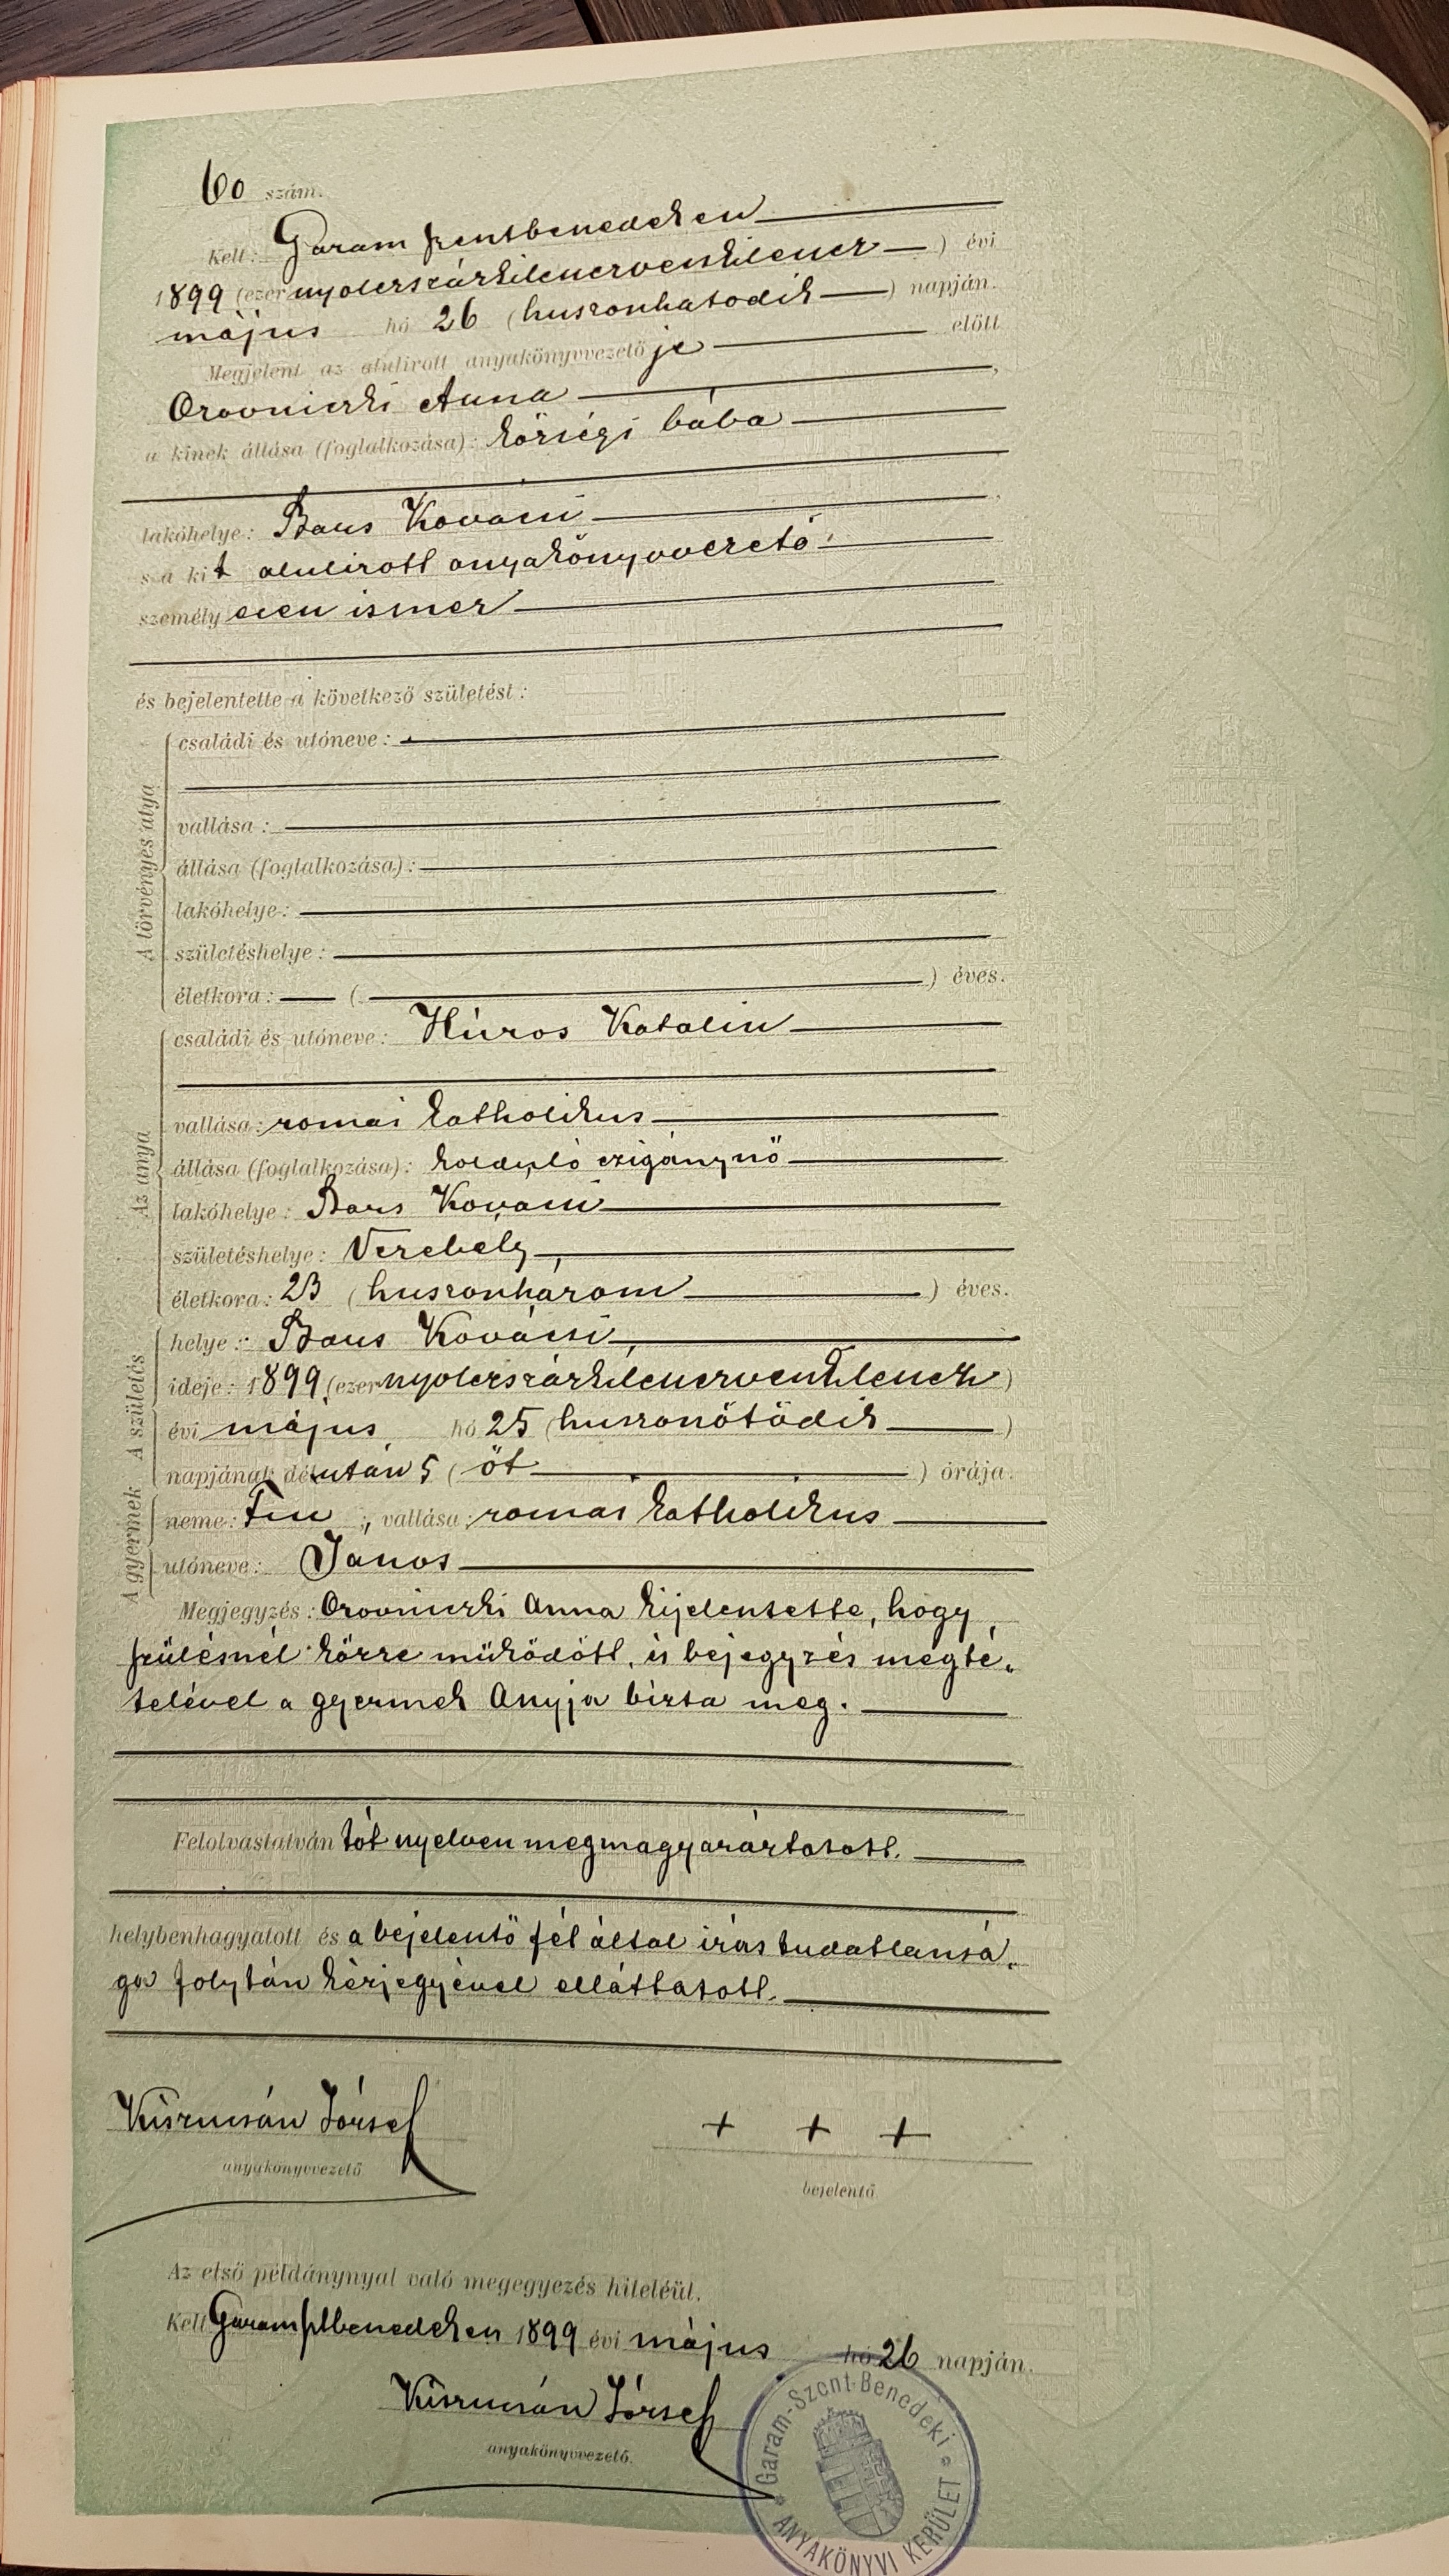 60 szám.
Kelt: Garam szentbenedeken
1899 (ezer nyolczszázkilenczvenkilencz) évi
május hó 26 (huszonhatodik) napján.
Megjelent az alulirott anyakönyvvezető je előtt
Orovniczki Anna,
a kinek állása (foglalkozása): községi bába
lakóhelye: Bars Kovácsi
s a kit alulirott anyakönyvvezető
személy esen ismer
és bejelentette a következő születést:
A törvényes atya
családi és utóneve:
vallása:
állása (foglalkozása):
lakóhelye:
születéshelye:
életkora: ( ) éves.
Az anya
családi és utóneve: Húros Katalin
vallása: romai katholikus
állása (foglalkozása): kolduló czigánynő
lakóhelye: Bars Kovacsi
születéshelye: Verebely
életkora: 23 (huszonhárom) éves.
A születés
helye: Bars Kovácsi,
ideje: 1899 (ezer nyolczszázkilenczvenkilencz)
évi május hó 25 (huszonötödik)
napjának délután 5 (öt) órája.
A gyermek
neme: Fiu; vallása: romai katholikus
utóneve: Janos
Megjegyzés: Orovniczki Anna kijelentette, hogy
szülésnél közre müködött, és bejegyzés megté„
telével a gyermek Anyja bizta meg.
Felolvastatván tót nyelven megmagyaráztatott.
helybenhagyatott és a bejelentő fél által irás tudatlansá„
ga folytán kézjegyével elláttatott.
József
+ + +
anyakönyvvezető
bejelentő
Az első példánynyal való megegyezés hiteléül.
Kelt Garamsztbenedeken 1899 évi május hó 26 napján.
József
anyakönyvvezető.
Garam-Szent-Benedeki
ANYAKÖNYVI KERÜLET